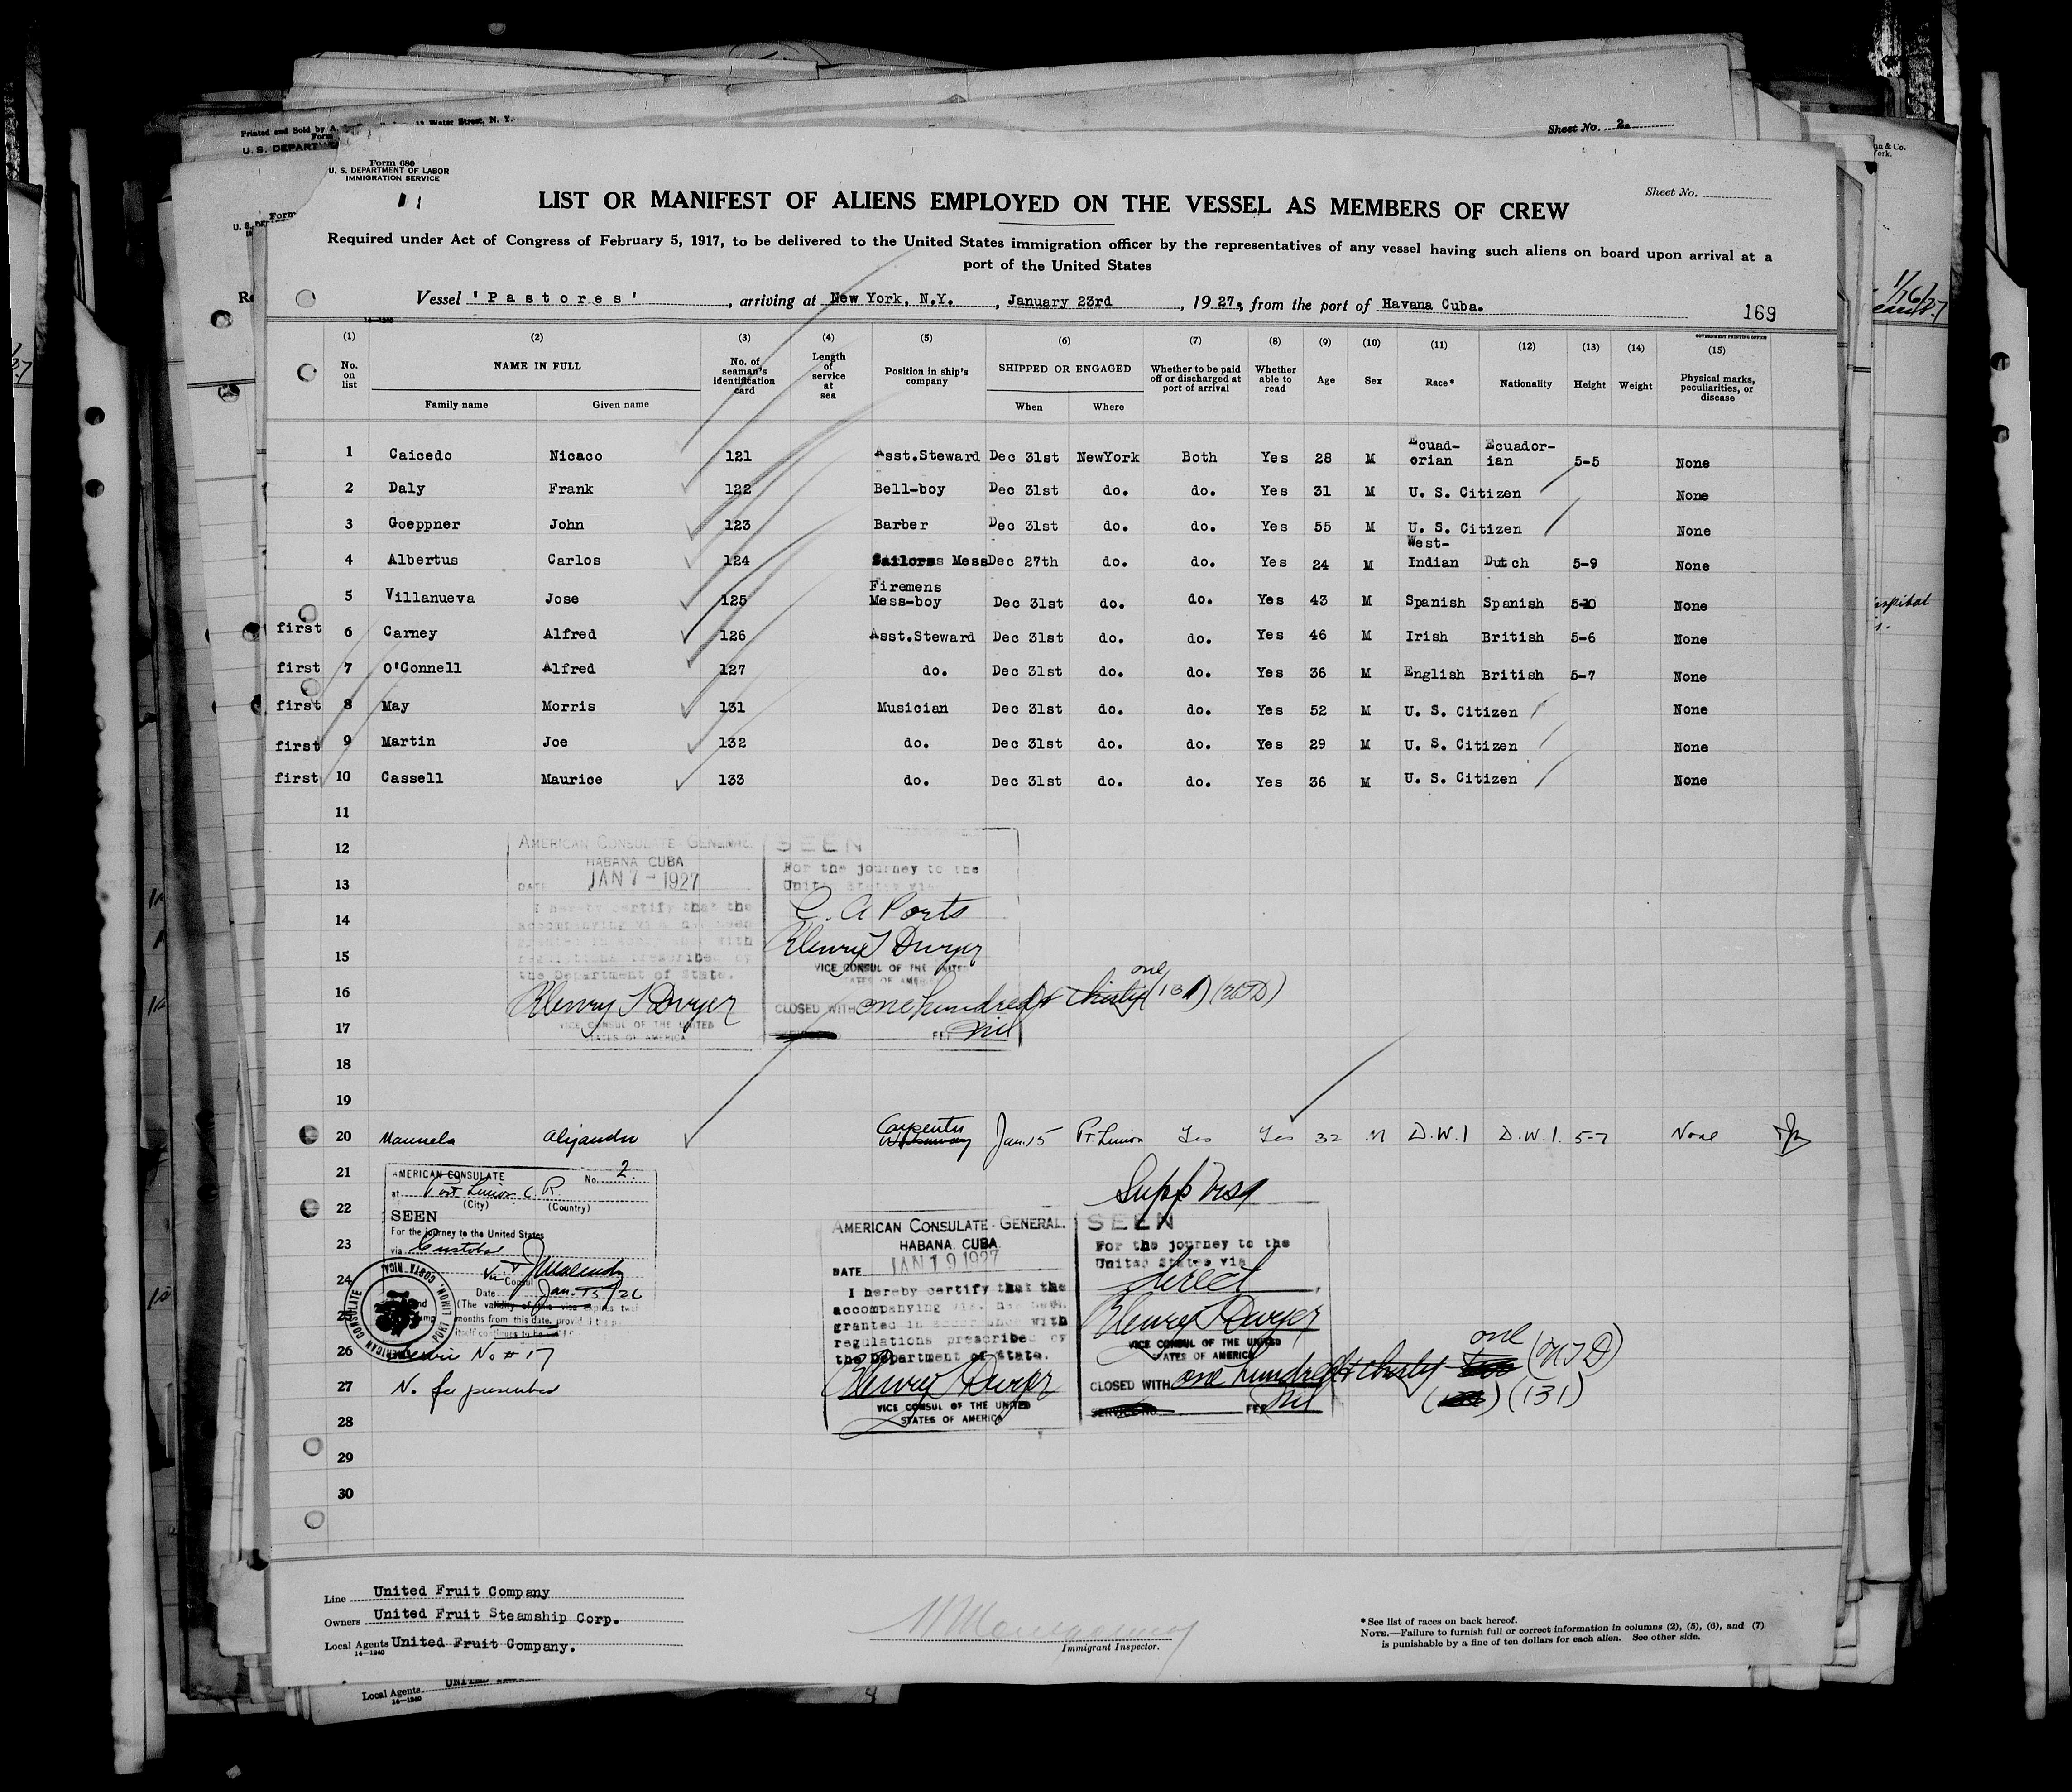 Printed and Sold by A. Water Street, N. Y.
Form
U. S. DEPARTME
Sheet No. 2.
Form 680
U. S. DEPARTMENT OF LABOR
IMMIGRATION SERVICE
Sheet No.
LIST OR MANIFEST OF ALIENS EMPLOYED ON THE VESSEL AS MEMBERS OF CREW
Required under Act of Congress of February 5, 1917, to be delivered to the United States immigration officer by the representatives of any vessel having such aliens on board upon arrival at a
port of the United States
Vessel 'Pastores', arriving at New York, N.Y., January 23rd, 1927, from the port of Havana Cuba.
169
14—1240
GOVERNMENT PRINTING OFFICE
(1) (2) (3) (4) (5) (6) (7) (8) (9) (10) (11) (12) (13) (14) (15)
No. on list NAME IN FULL No. of seaman's identification card Length of service at sea Position in ship's company SHIPPED OR ENGAGED Whether to be paid off or discharged at port of arrival Whether able to read Age Sex Race* Nationality Height Weight Physical marks, peculiarities, or disease
Family name Given name When Where
1 Caicedo Nicaco 121 Asst.Steward Dec 31st NewYork Both Yes 28 M Ecuad-orian Ecuador-ian 5-5 None
2 Daly Frank 122 Bell-boy Dec 31st do. do. Yes 31 M U. S. Citizen None
3 Goeppner John 123 Barber Dec 31st do. do. Yes 55 M U. S. Citizen None
4 Albertus Carlos 124 Sailors Mess Dec 27th do. do. Yes 24 M West-Indian Dutch 5-9 None
5 Villanueva Jose 125 Firemens Mess-boy Dec 31st do. do. Yes 43 M Spanish Spanish 5-10 None
first 6 Carney Alfred 126 Asst.Steward Dec 31st do. do. Yes 46 M Irish British 5-6 None
first 7 O'Connell Alfred 127 do. Dec 31st do. do. Yes 36 M English British 5-7 None
first 8 May Morris 131 Musician Dec 31st do. do. Yes 52 M U. S. Citizen None
first 9 Martin Joe 132 do. Dec 31st do. do. Yes 29 M U. S. Citizen None
first 10 Cassell Maurice 133 do. Dec 31st do. do. Yes 36 M U. S. Citizen None
11
12
13
14
15
16
17
18
19
AMERICAN CONSULATE-GENERAL.
HABANA CUBA
DATE JAN 7 - 1927
I hereby certify that the
accompanying visa has been
granted in accordance with
regulations prescribed by
the Department of State.
Henry T Dwyer
VICE CONSUL OF THE UNITED
STATES OF AMERICA
SEEN
For the journey to the
United States via
C. A Ports
Henry T Dwyer
VICE CONSUL OF THE UNITED
STATES OF AMERICA
CLOSED WITH one hundred & thirty one (131) (HTD)
FEE Nil
20 Manuela Alijandro Carpenter Jan. 15 Pt. Limon Yes Yes 32 M D.W.I D.W.I. 5-7 None
21
22
23
24
25
26
27
28
29
30
AMERICAN CONSULATE No. 2.
at Port Limon C. R.
(City) (Country)
SEEN
For the journey to the United States
via Cristobal
Vice Consul
Date Jan. 15/26
(The validity of this visa expires
months from this date, provided
AMERICAN CONSULATE PORT LIMON, COSTA RICA
Service No # 17
No fee prescribed
Supp Visa
AMERICAN CONSULATE-GENERAL.
HABANA. CUBA.
DATE JAN 19 1927
I hereby certify that the
accompanying visa has been
granted in accordance with
regulations prescribed by
the Department of State.
Henry T Dwyer
VICE CONSUL OF THE UNITED
STATES OF AMERICA
SEEN
For the journey to the
United States via
direct
Henry T Dwyer
VICE CONSUL OF THE UNITED
STATES OF AMERICA
CLOSED WITH one hundred & thirty one (HTD)
(131)
SERVICE NO. FEE Nil
Line United Fruit Company
Owners United Fruit Steamship Corp.
Local Agents United Fruit Company.
14—1240
Immigrant Inspector.
*See list of races on back hereof.
NOTE.—Failure to furnish full or correct information in columns (2), (5), (6), and (7)
is punishable by a fine of ten dollars for each alien. See other side.
Local Agents
14—1240